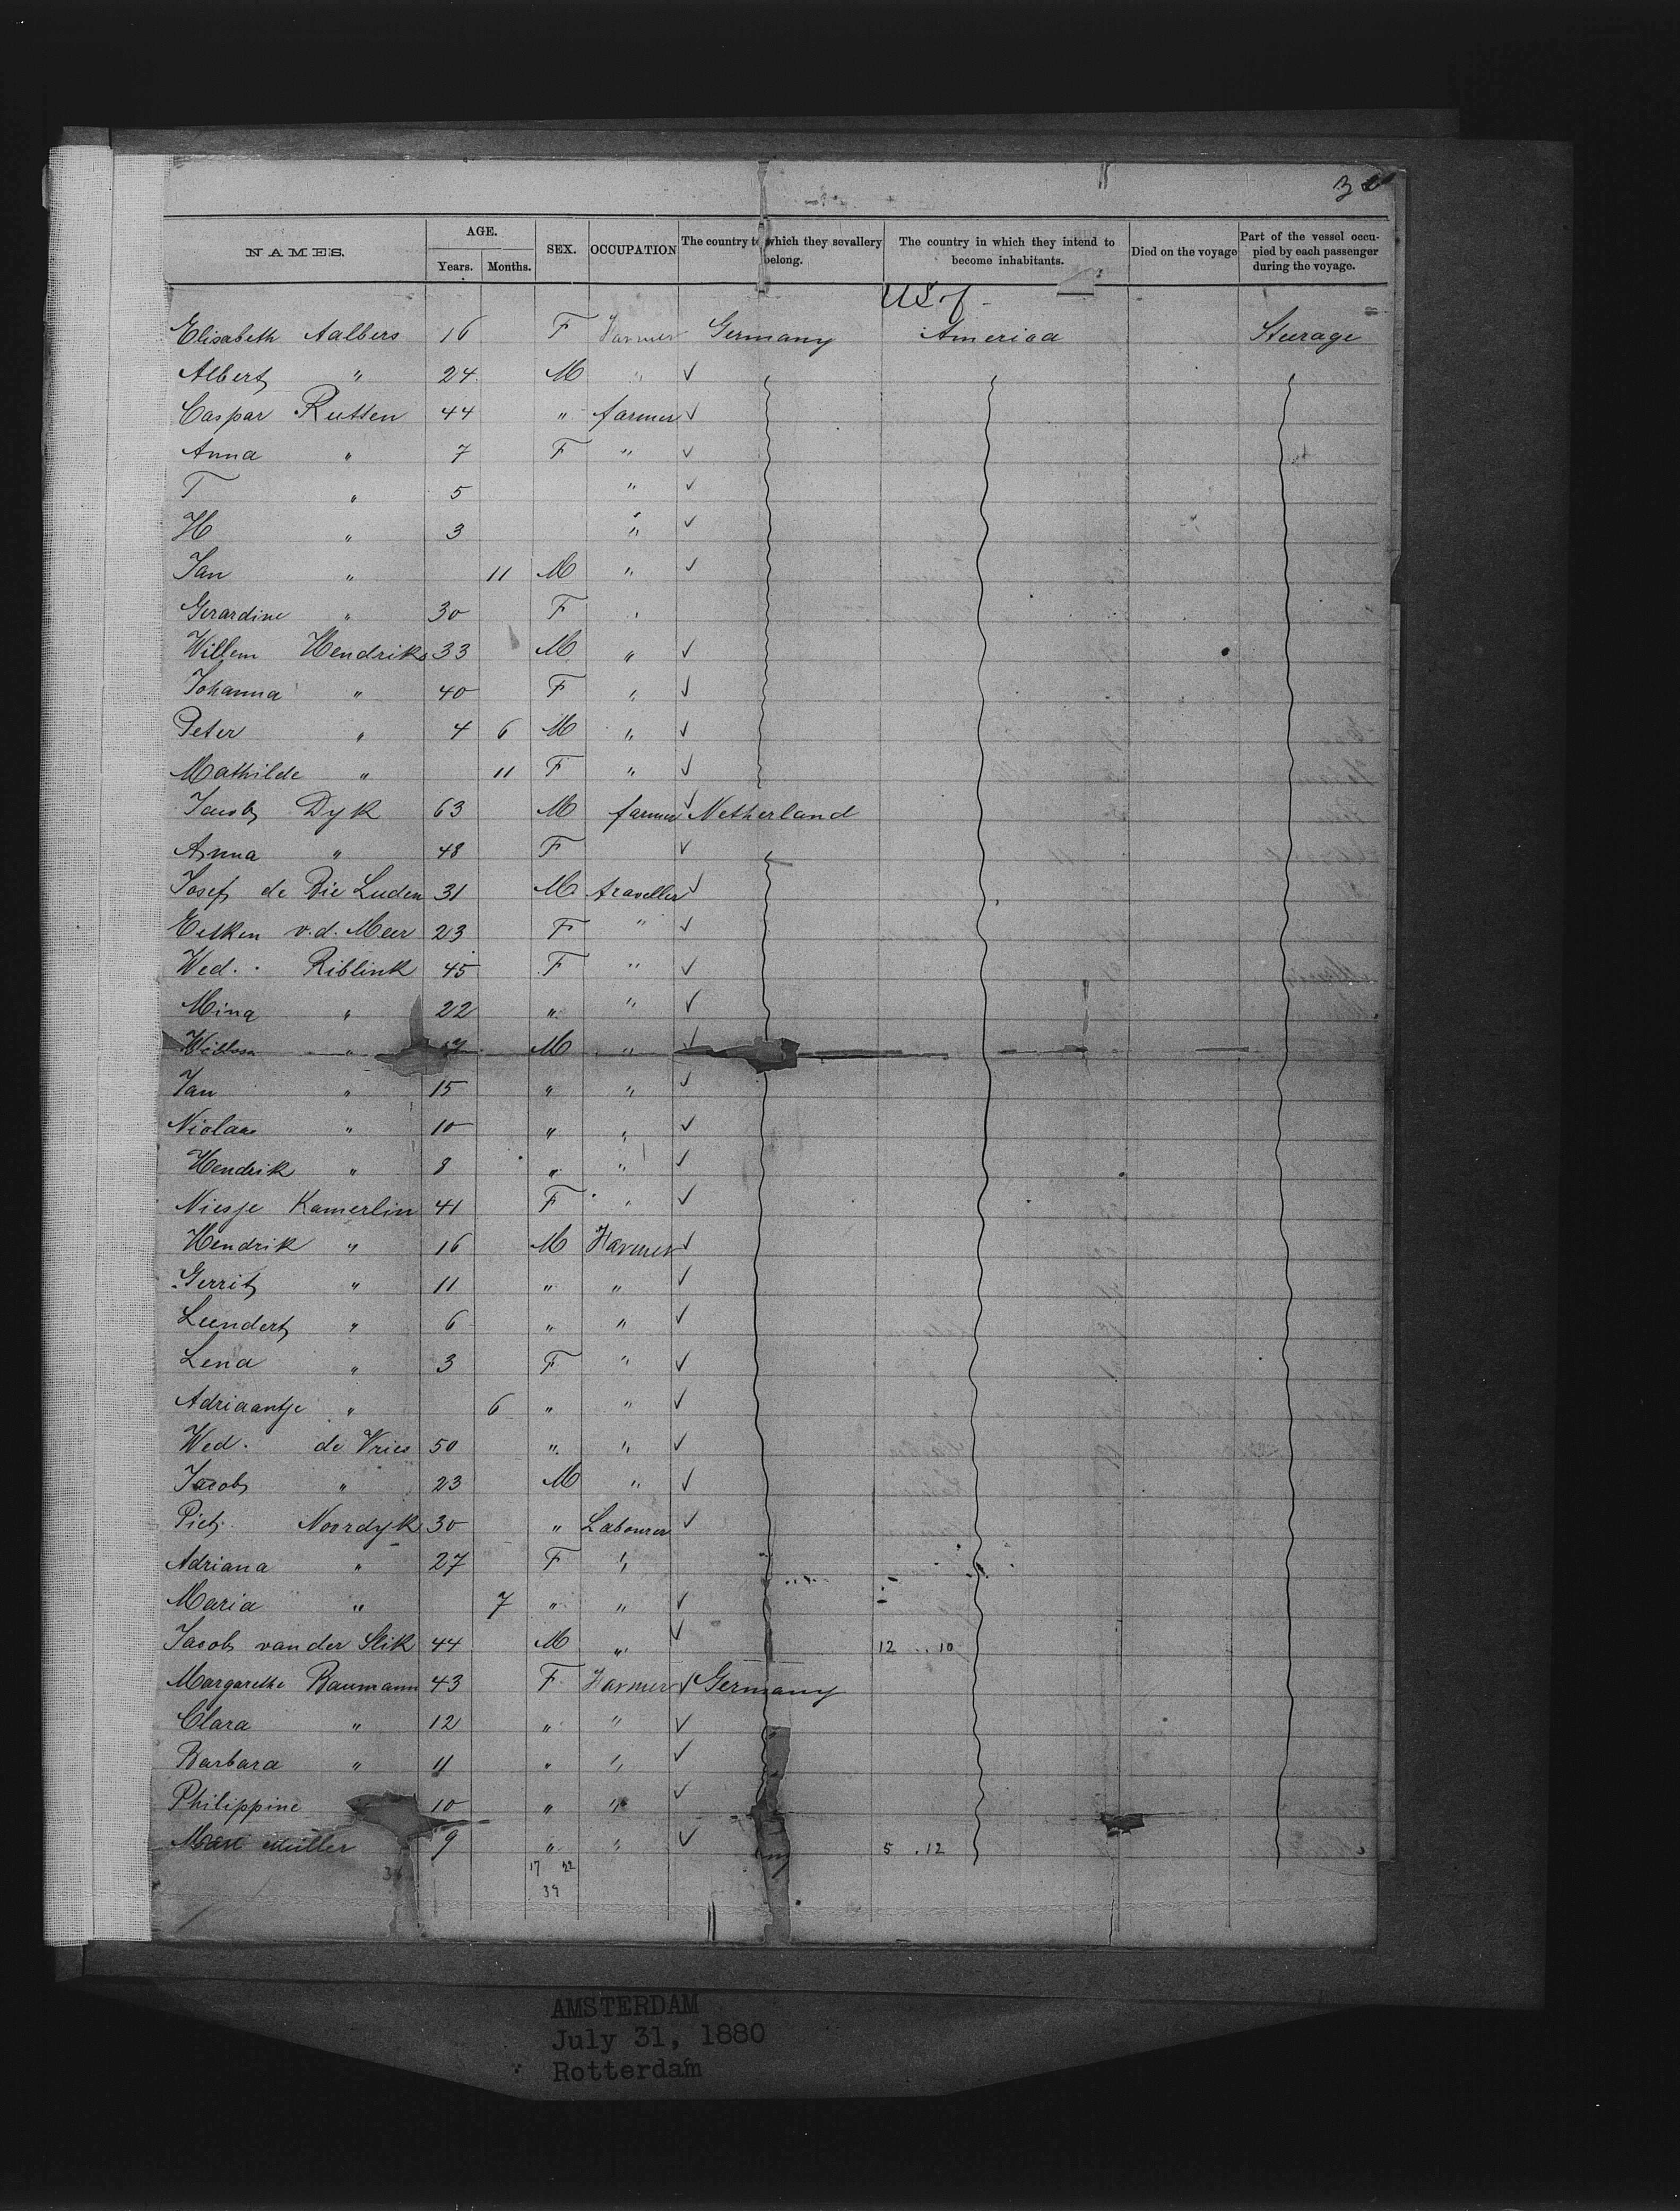 30
NAMES. AGE. Years. Months. SEX. OCCUPATION The country to which they sevallery belong. The country in which they intend to become inhabitants. Died on the voyage Part of the vessel occupied by each passenger during the voyage.
U S. of
Elisabeth Aalbers 16 F Farmer Germany America Steerage
Albert " 24 M " ✓
Caspar Rutten 44 " farmer ✓
Anna " 7 F " ✓
T " 5 " ✓
H " 3 " ✓
Jan " 11 M " ✓
Gerardine " 30 F "
Willem Hendriks 33 M " ✓
Johanna " 40 F " ✓
Peter " 4 6 M " ✓
Mathilde " 11 F " ✓
Jacob Dyk 63 M farmer ✓ Netherland
Anna " 48 F ✓
Josef de Bie Luden 31 M traveller ✓
Eelken v.d. Meer 23 F " ✓
Wed. Riblink 45 F " ✓
Mina " 22 " " ✓
Willem " M " ✓
Jan " 15 " " ✓
Niolaas " 10 " " ✓
Hendrik " 8 " " ✓
Niesje Kamerlin 41 F " ✓
Hendrik " 16 M Farmer ✓
Gerrit " 11 " " ✓
Leendert " 6 " " ✓
Lena " 3 F " ✓
Adriaantje " 6 " " ✓
Wed. de Vries 50 " " ✓
Jacob " 23 M " ✓
Piet Noordyk 30 " Labourer ✓
Adriana " 27 F "
Maria " 7 " " ✓
Jacob van der Slik 44 M " ✓ 12 .. 10
Margarethe Baumann 43 F Farmer ✓ Germany
Clara " 12 " " ✓
Barbara " 11 " " ✓
Philippine 10 " " ✓
Müller 9 " " ✓ 5 . 12
17 22
39
AMSTERDAM
July 31, 1880
Rotterdam